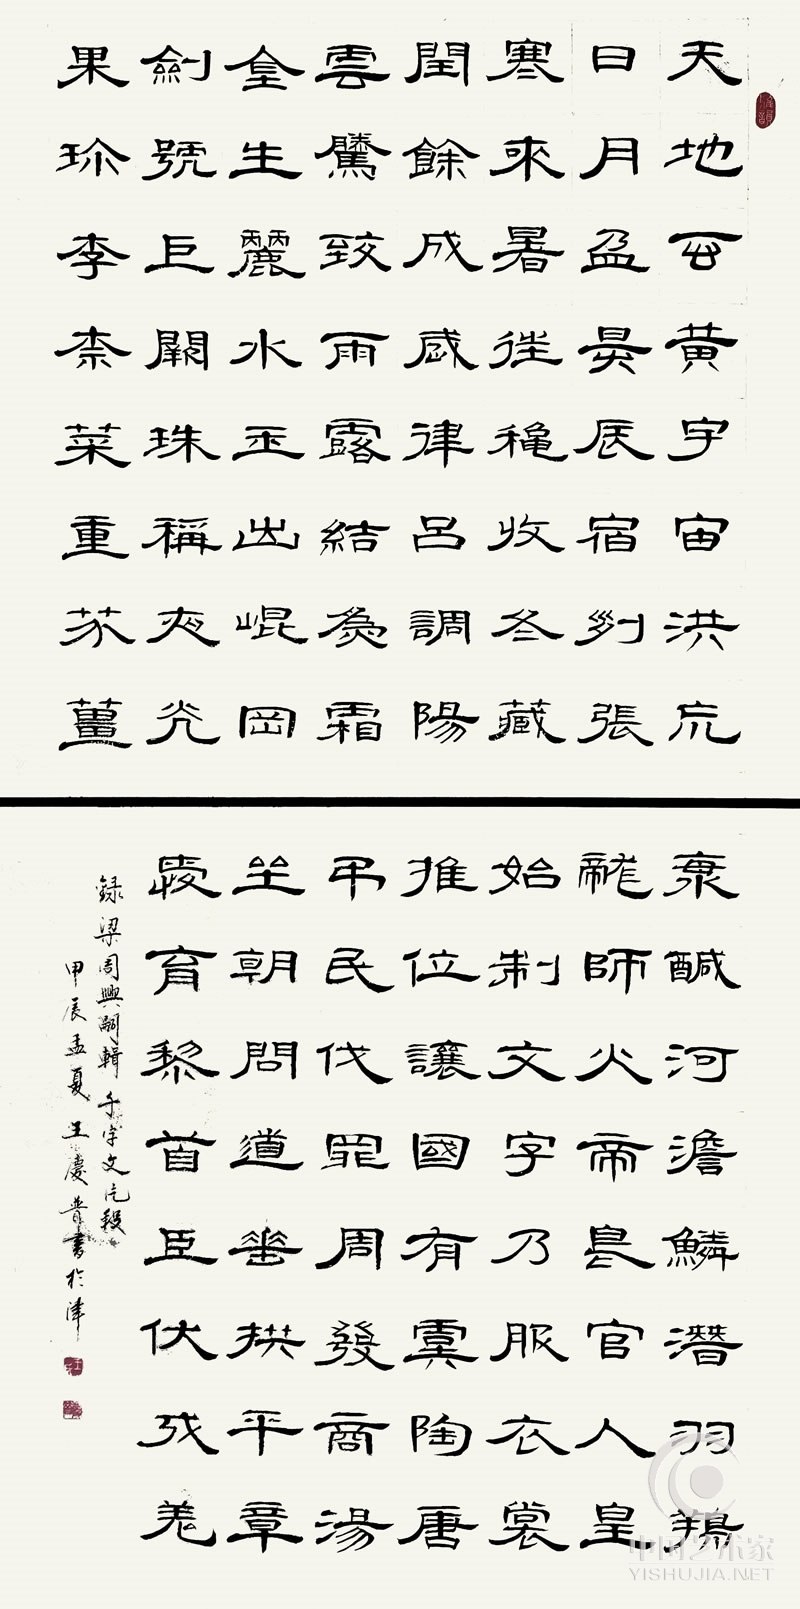 天地玄黄宇宙洪荒
日月盈昃辰宿列張
寒來暑往穐收冬藏
閏餘成歲律呂調陽
雲騰致雨露結爲霜
金生麗水玉出崐岡
劍號巨闕珠稱夜光
果珍李柰菜重芥薑
海鹹河澹鱗潛羽翔
龍師火帝鳥官人皇
始制文字乃服衣裳
推位讓國有虞陶唐
弔民伐罪周發商湯
坐朝問道垂拱平章
愛育黎首臣伏戎羌
録梁周興嗣輯千字文片段
甲辰孟夏王慶普書於津
中国艺术家
YISHUJIA.NET